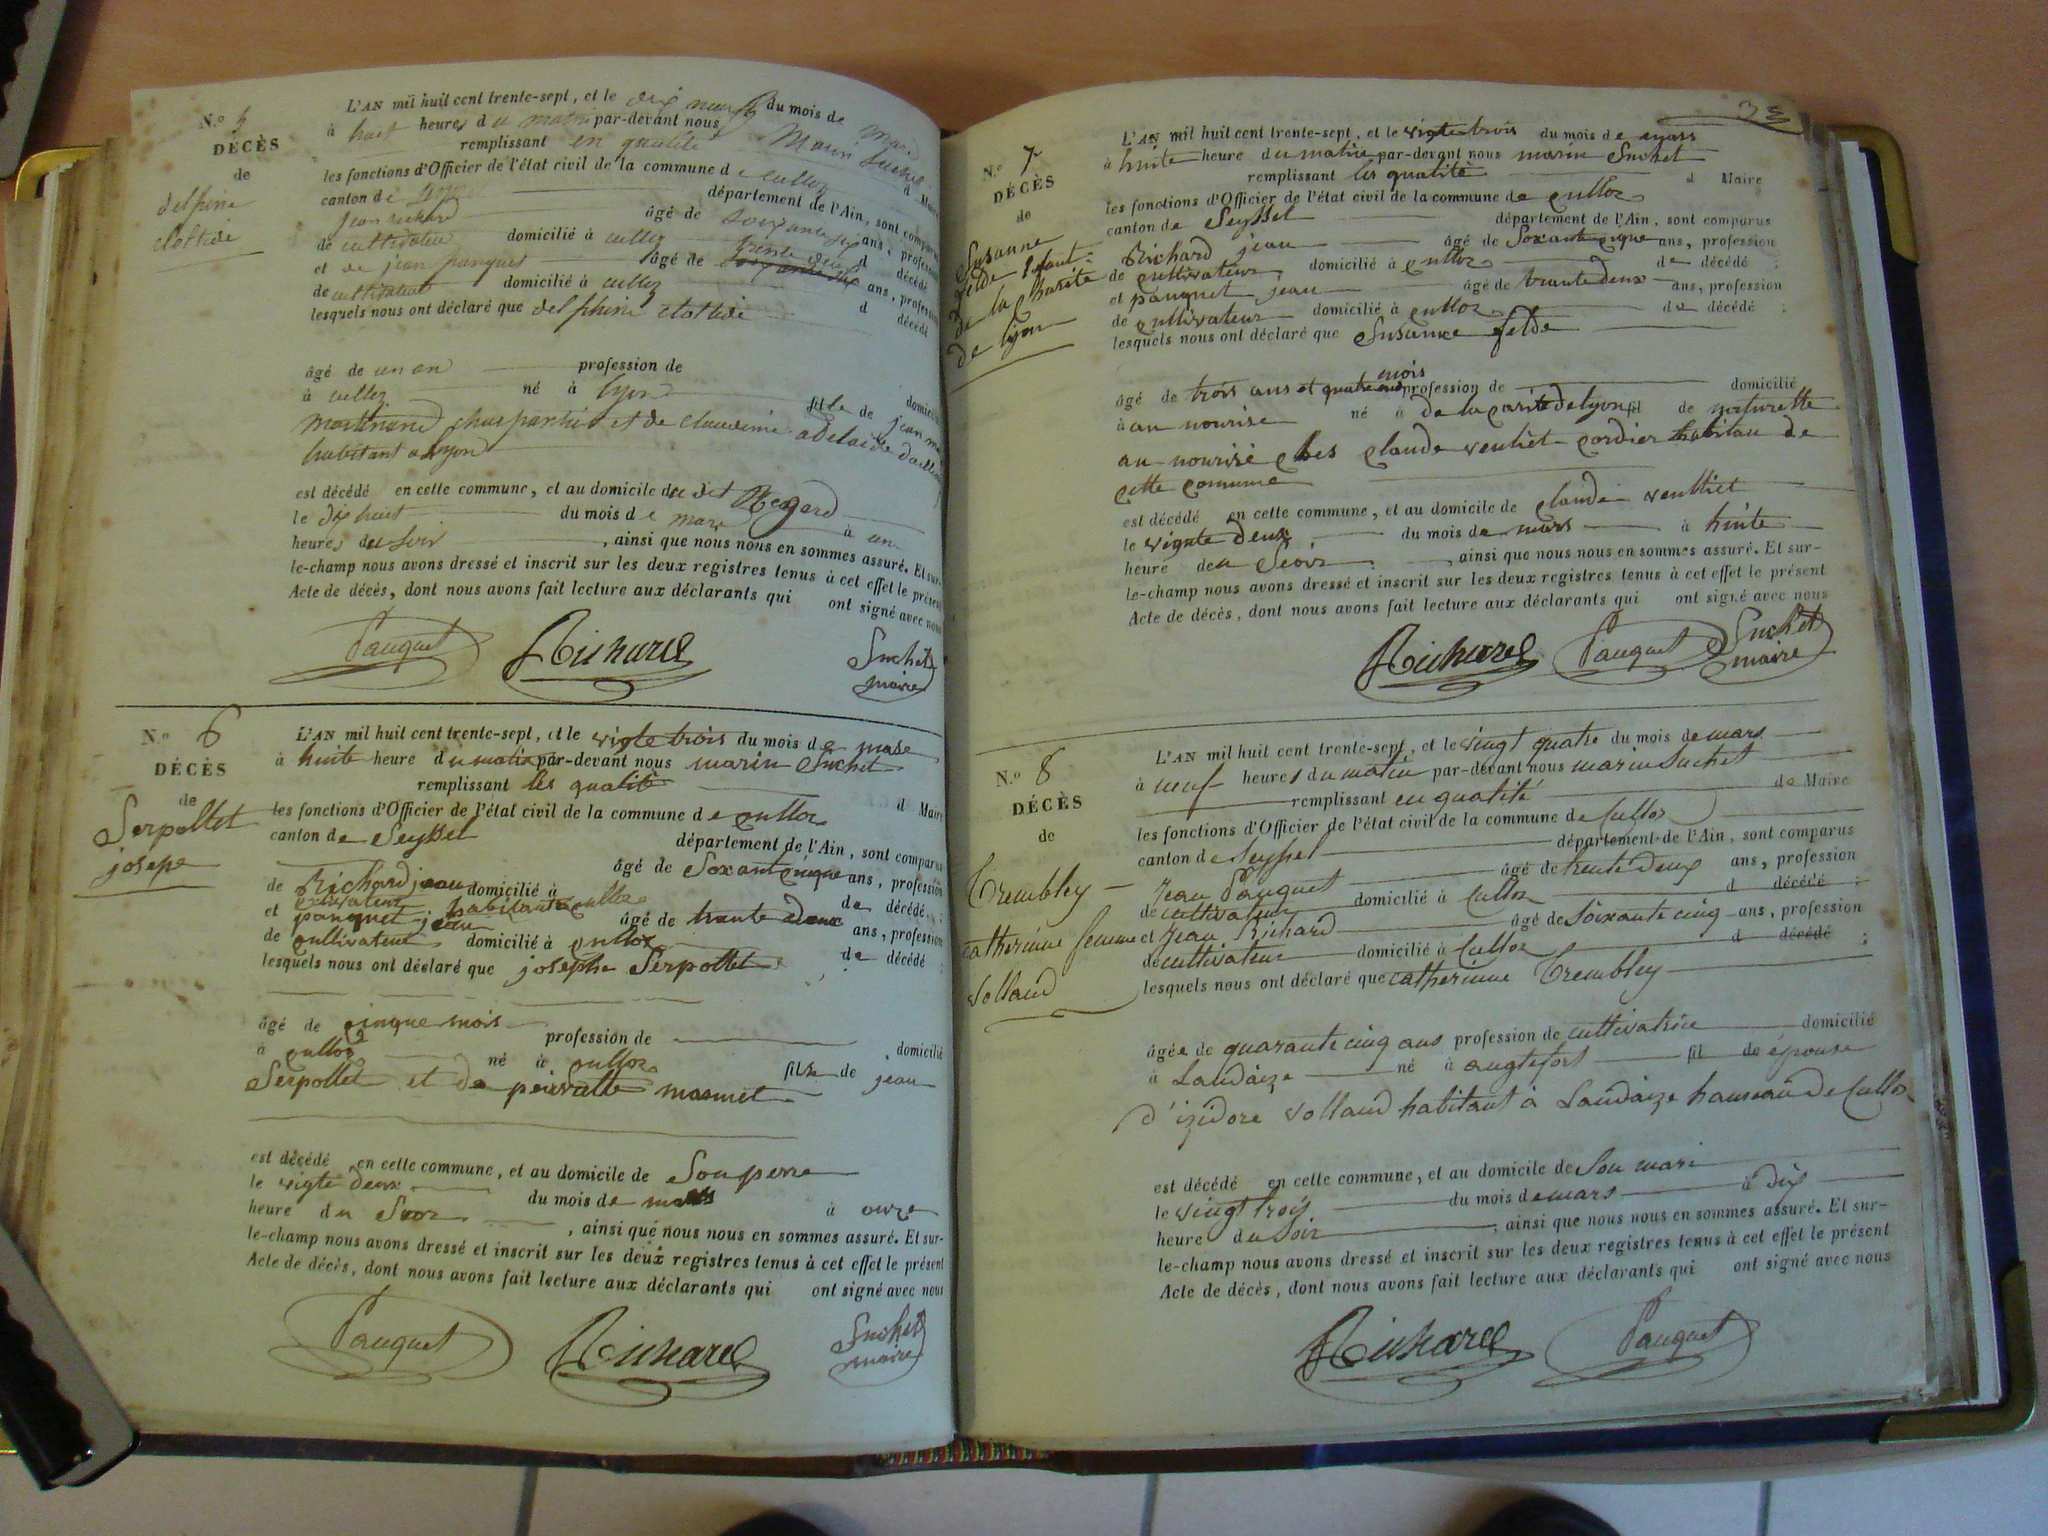 N.o 5
DÉCÈS
de
delphine
clottide
L'AN mil huit cent trente-sept, et le dix neuf du mois de mars
à huit heures du matin par-devant nous Marin Suchet
remplissant en qualité d Maire
les fonctions d'Officier de l'état civil de la commune de culloz
canton de département de l'Ain, sont comparus
jean richard âgé de ans, profession
de cultivateur domicilié à culloz d décédé
et de jean pauquet âgé de trente deux ans, profession
de cultivateur domicilié à culloz d décédé
lesquels nous ont déclaré que delphine clottide
âgé de un an profession de domicilié
à culloz né à lyon fille de jean
et de claudine adelaide
habitant a lyon
est décédé en cette commune, et au domicile du dit
le dix huit du mois de mars à un
heures du soir , ainsi que nous nous en sommes assuré. Et sur-
le-champ nous avons dressé et inscrit sur les deux registres tenus à cet effet le présent
Acte de décès, dont nous avons fait lecture aux déclarants qui ont signé avec nous
Pauquet Richard Suchet
maire
N.o 6
DÉCÈS
de
Serpollet
josepe
L'AN mil huit cent trente-sept, et le vigte trois du mois de mase
à huite heure du matin par-devant nous marin Suchet
remplissant les qualité d Maire
les fonctions d'Officier de l'état civil de la commune de culloz
canton de Seyssel département de l'Ain, sont comparus
Richard jean âgé de Soxant cinque ans, profession
de cultivateur domicilié à habitant culloz de décédé ;
et pauquet jean âgé de trante deux ans, profession
de cultivateur domicilié à culloz de décédé ;
lesquels nous ont déclaré que josephe Serpollet
âgé de cinque mois profession de domicilié
à culloz né à culloz fils de jean
Serpollet et de masmet
est décédé en cette commune, et au domicile de Son perre
le vigte deux du mois de mars à onze
heure du Soor , ainsi que nous nous en sommes assuré. Et sur-
le-champ nous avons dressé et inscrit sur les deux registres tenus à cet effet le présent
Acte de décès, dont nous avons fait lecture aux déclarants qui ont signé avec nous
Pauquet Richard Suchet
maire
3
N.o 7
DÉCÈS
de
Susanne
felde
de la Charite
de lyon
L'AN mil huit cent trente-sept, et le vigte trois du mois de mars
à huite heure du matin par-devant nous marin Suchet
remplissant les qualité d Maire
les fonctions d'Officier de l'état civil de la commune de culloz
canton de Seyssel département de l'Ain, sont comparus
Richard jean âgé de Soxante cique ans, profession
de cultivateur domicilié à culloz de décédé ;
et pauquet jean âgé de trante deux ans, profession
de cultivateur domicilié à culloz de décédé ;
lesquels nous ont déclaré que Susanne felde
âgé de trois ans et quatre mois profession de domicilié
à au nourise né à de la carite de lyon fil de naturelle
au nourise ches claude veulliet cordier habitan de
cette comune
est décédé en cette commune, et au domicile de claude veulliet
le vignte deux du mois de mars à huite
heure deu Seoir , ainsi que nous nous en sommes assuré. Et sur-
le-champ nous avons dressé et inscrit sur les deux registres tenus à cet effet le présent
Acte de décès, dont nous avons fait lecture aux déclarants qui ont signé avec nous
Richard Pauquet Suchet
maire
N.o 8
DÉCÈS
de
Trembley
catherinne femme
Volland
L'AN mil huit cent trente-sept, et le vingt quatre du mois de mars
à neuf heures du matin par-devant nous marin Suchet
remplissant en qualité de Maire
les fonctions d'Officier de l'état civil de la commune de Culloz
canton de Seyssel département de l'Ain, sont comparus
Jean Pauquet âgé de trente deux ans, profession
de cultivateur domicilié à Culloz d décédé ;
et Jean Richard âgé de soixante cinq ans, profession
de cultivateur domicilié à Culloz d décédé ;
lesquels nous ont déclaré que catherinne Trembley
âgée de quarante cinq ans profession de cultivatrice domicilié
à Landaize né à anglefort fil de épouse
d'izidore Volland habitant à Landaize hameau de Culloz
est décédé en cette commune, et au domicile de Son mari
le vingt trois du mois de mars à dix
heure du Soir , ainsi que nous nous en sommes assuré. Et sur-
le-champ nous avons dressé et inscrit sur les deux registres tenus à cet effet le présent
Acte de décès, dont nous avons fait lecture aux déclarants qui ont signé avec nous
Richard Pauquet